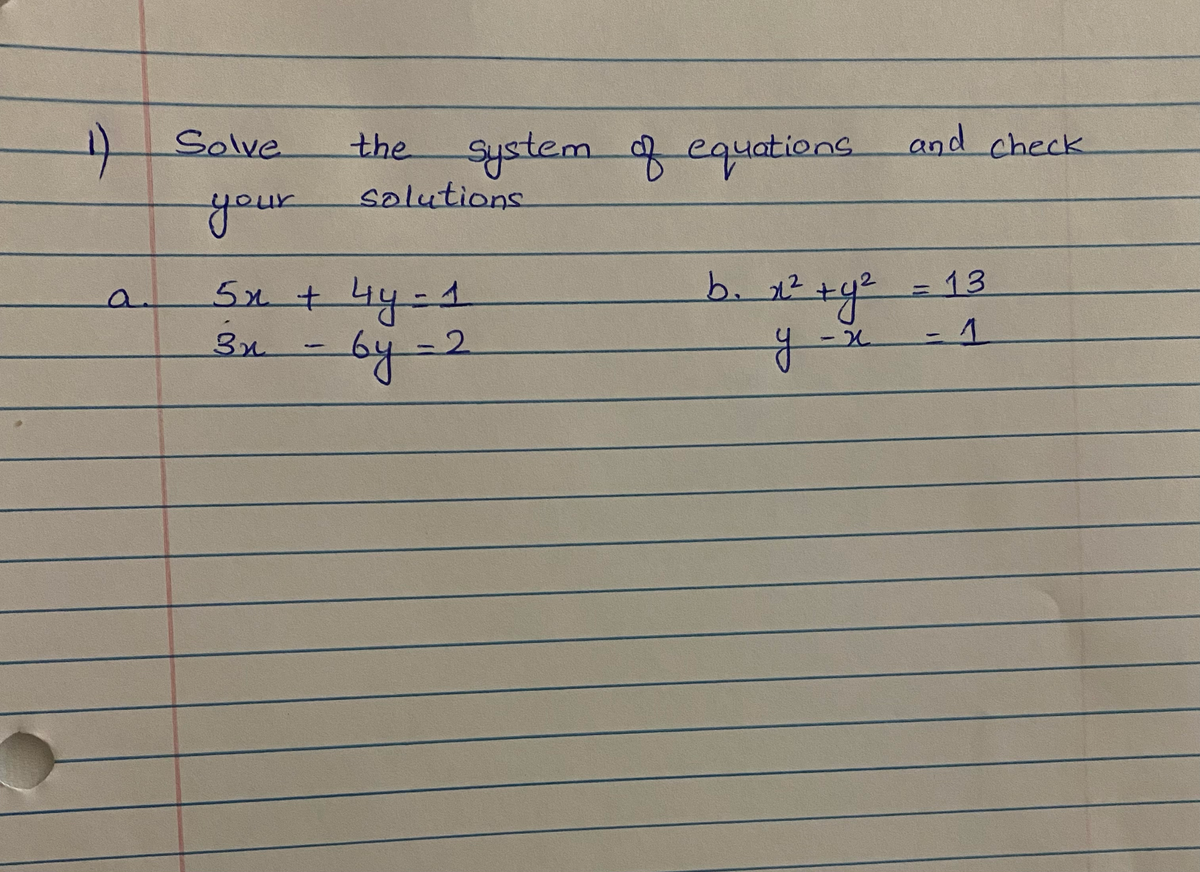 1) Solve the system of equations and check
your solutions
a. 5x + 4y = 1 b. x² + y² = 13
3x - 6y = 2 y - x = 1